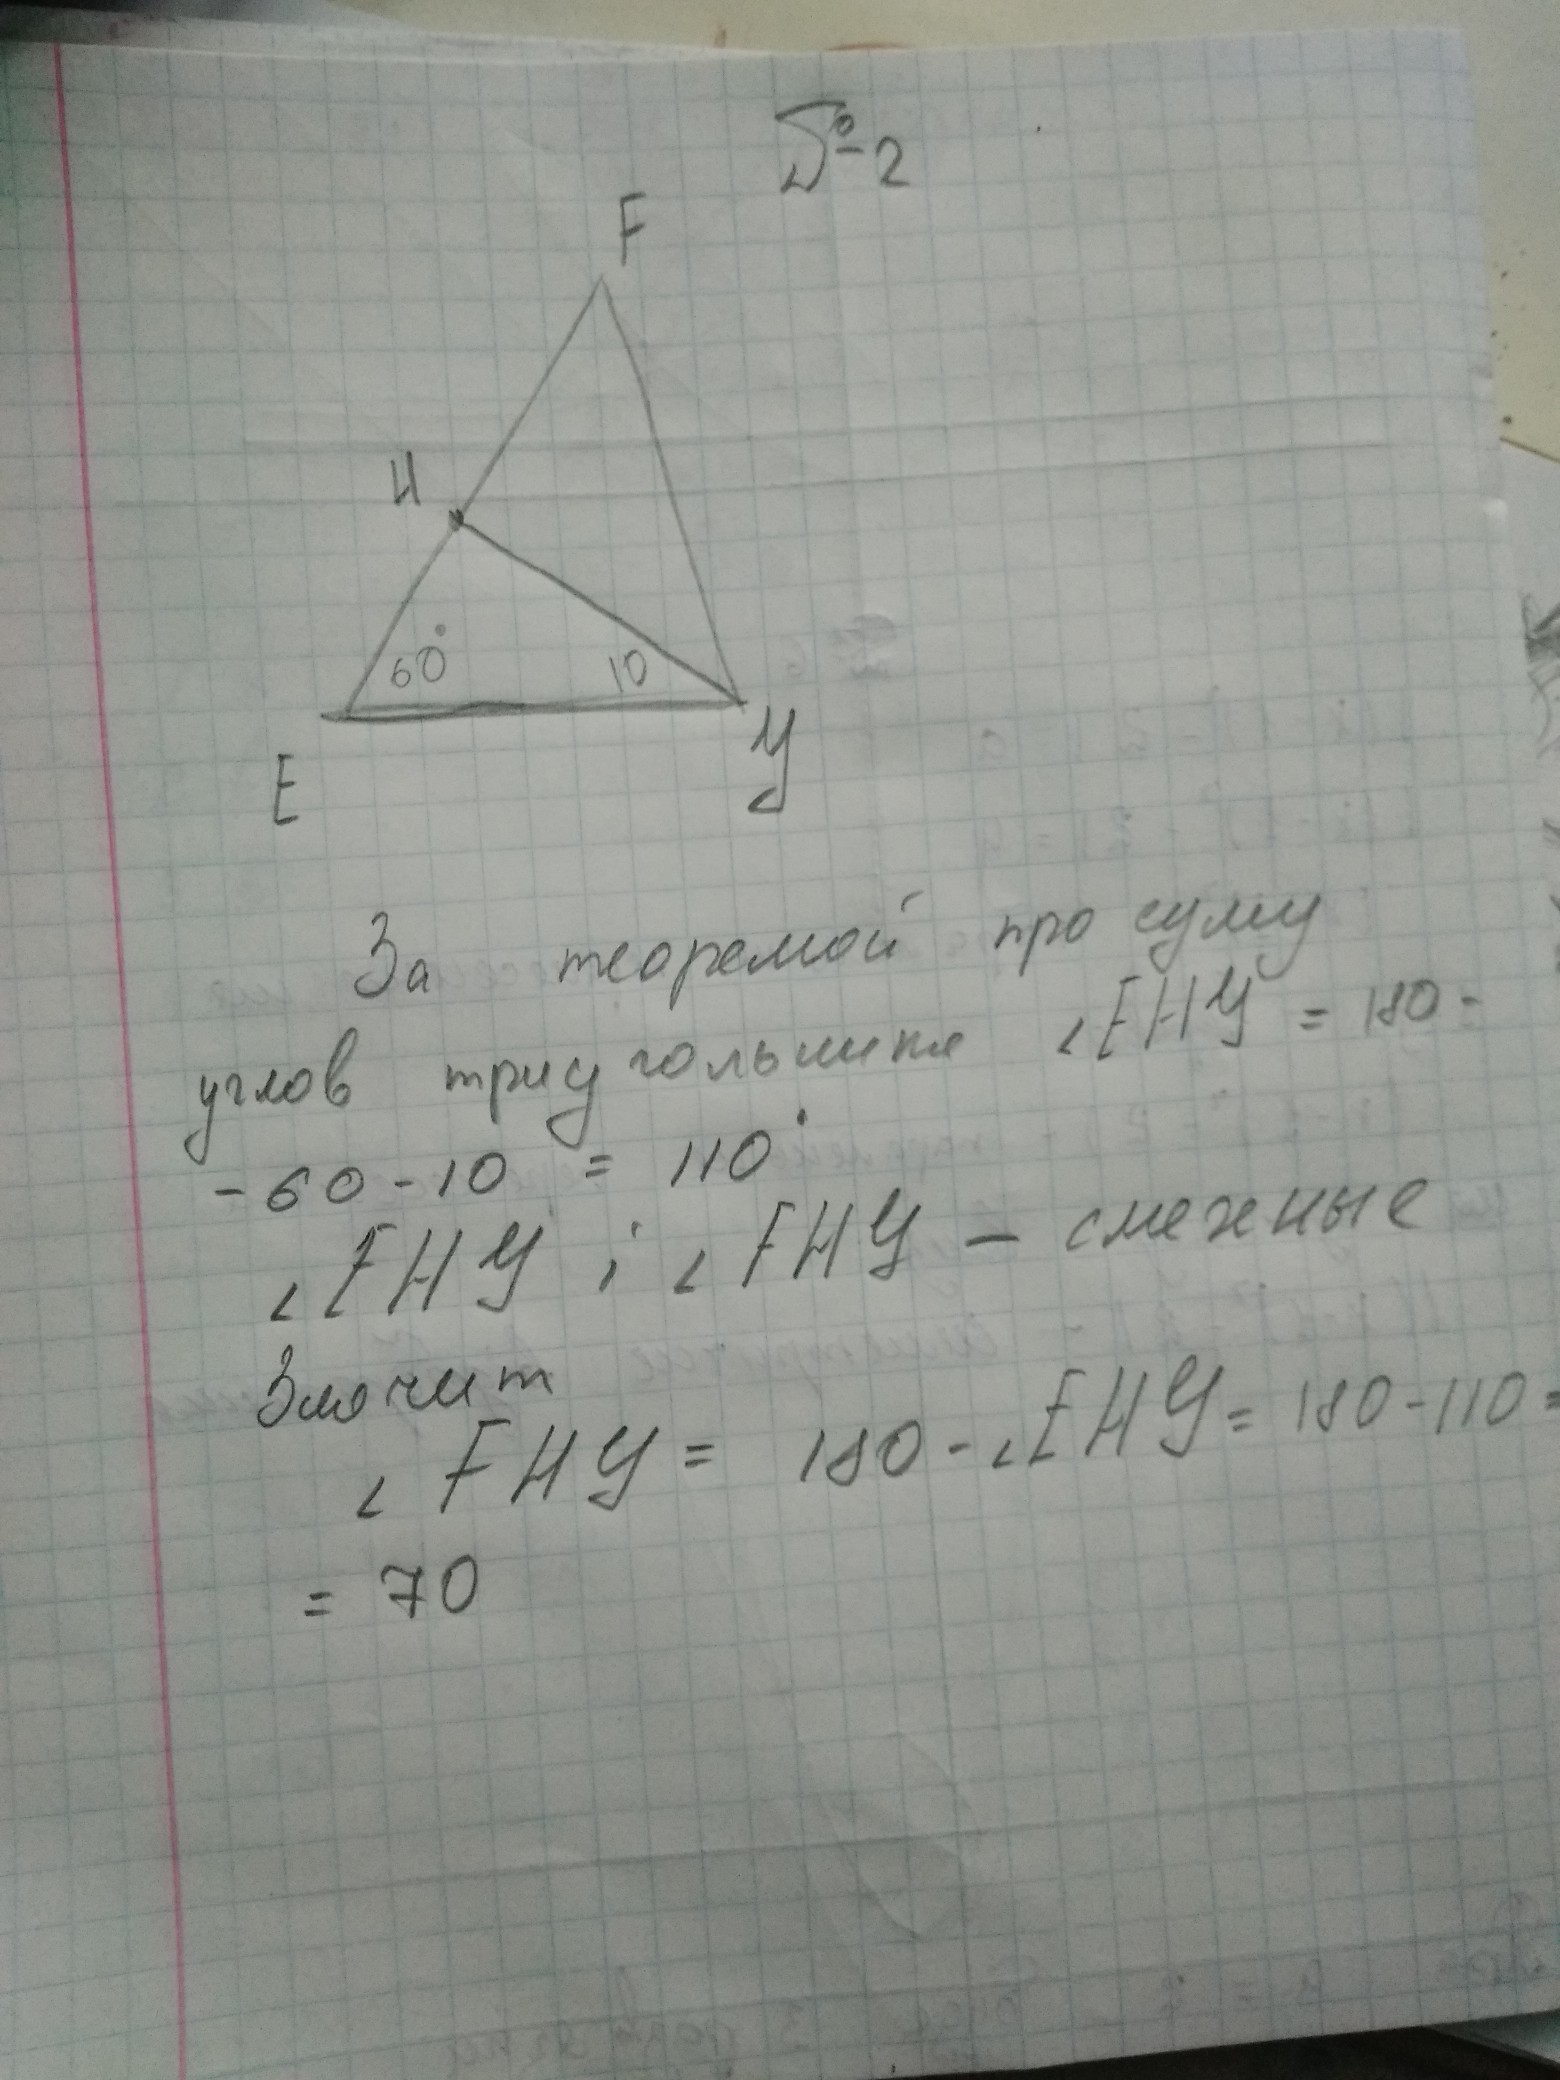 №2
F
H
60°
10
E
У
За теоремой про суму
углов триугольника ∠EHУ = 180-
-60-10 = 110°
∠EHУ і ∠FHУ - смежные
Значит
∠FHУ = 180-∠EHУ = 180-110=
= 70